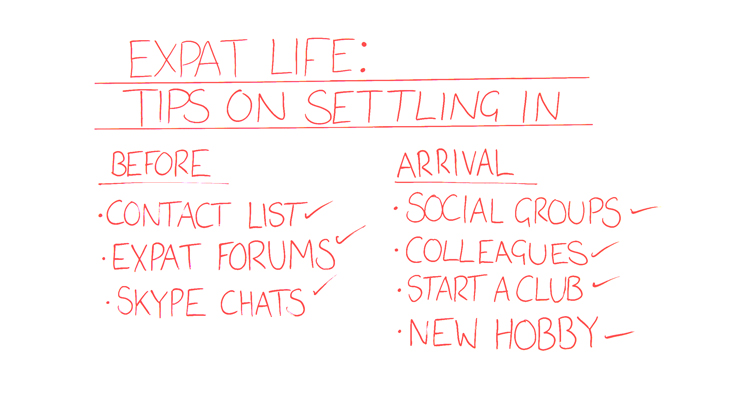 EXPAT LIFE:
TIPS ON SETTLING IN
BEFORE
• CONTACT LIST ✓
• EXPAT FORUMS ✓
• SKYPE CHATS ✓
ARRIVAL
• SOCIAL GROUPS ✓
• COLLEAGUES ✓
• START A CLUB ✓
• NEW HOBBY ✓